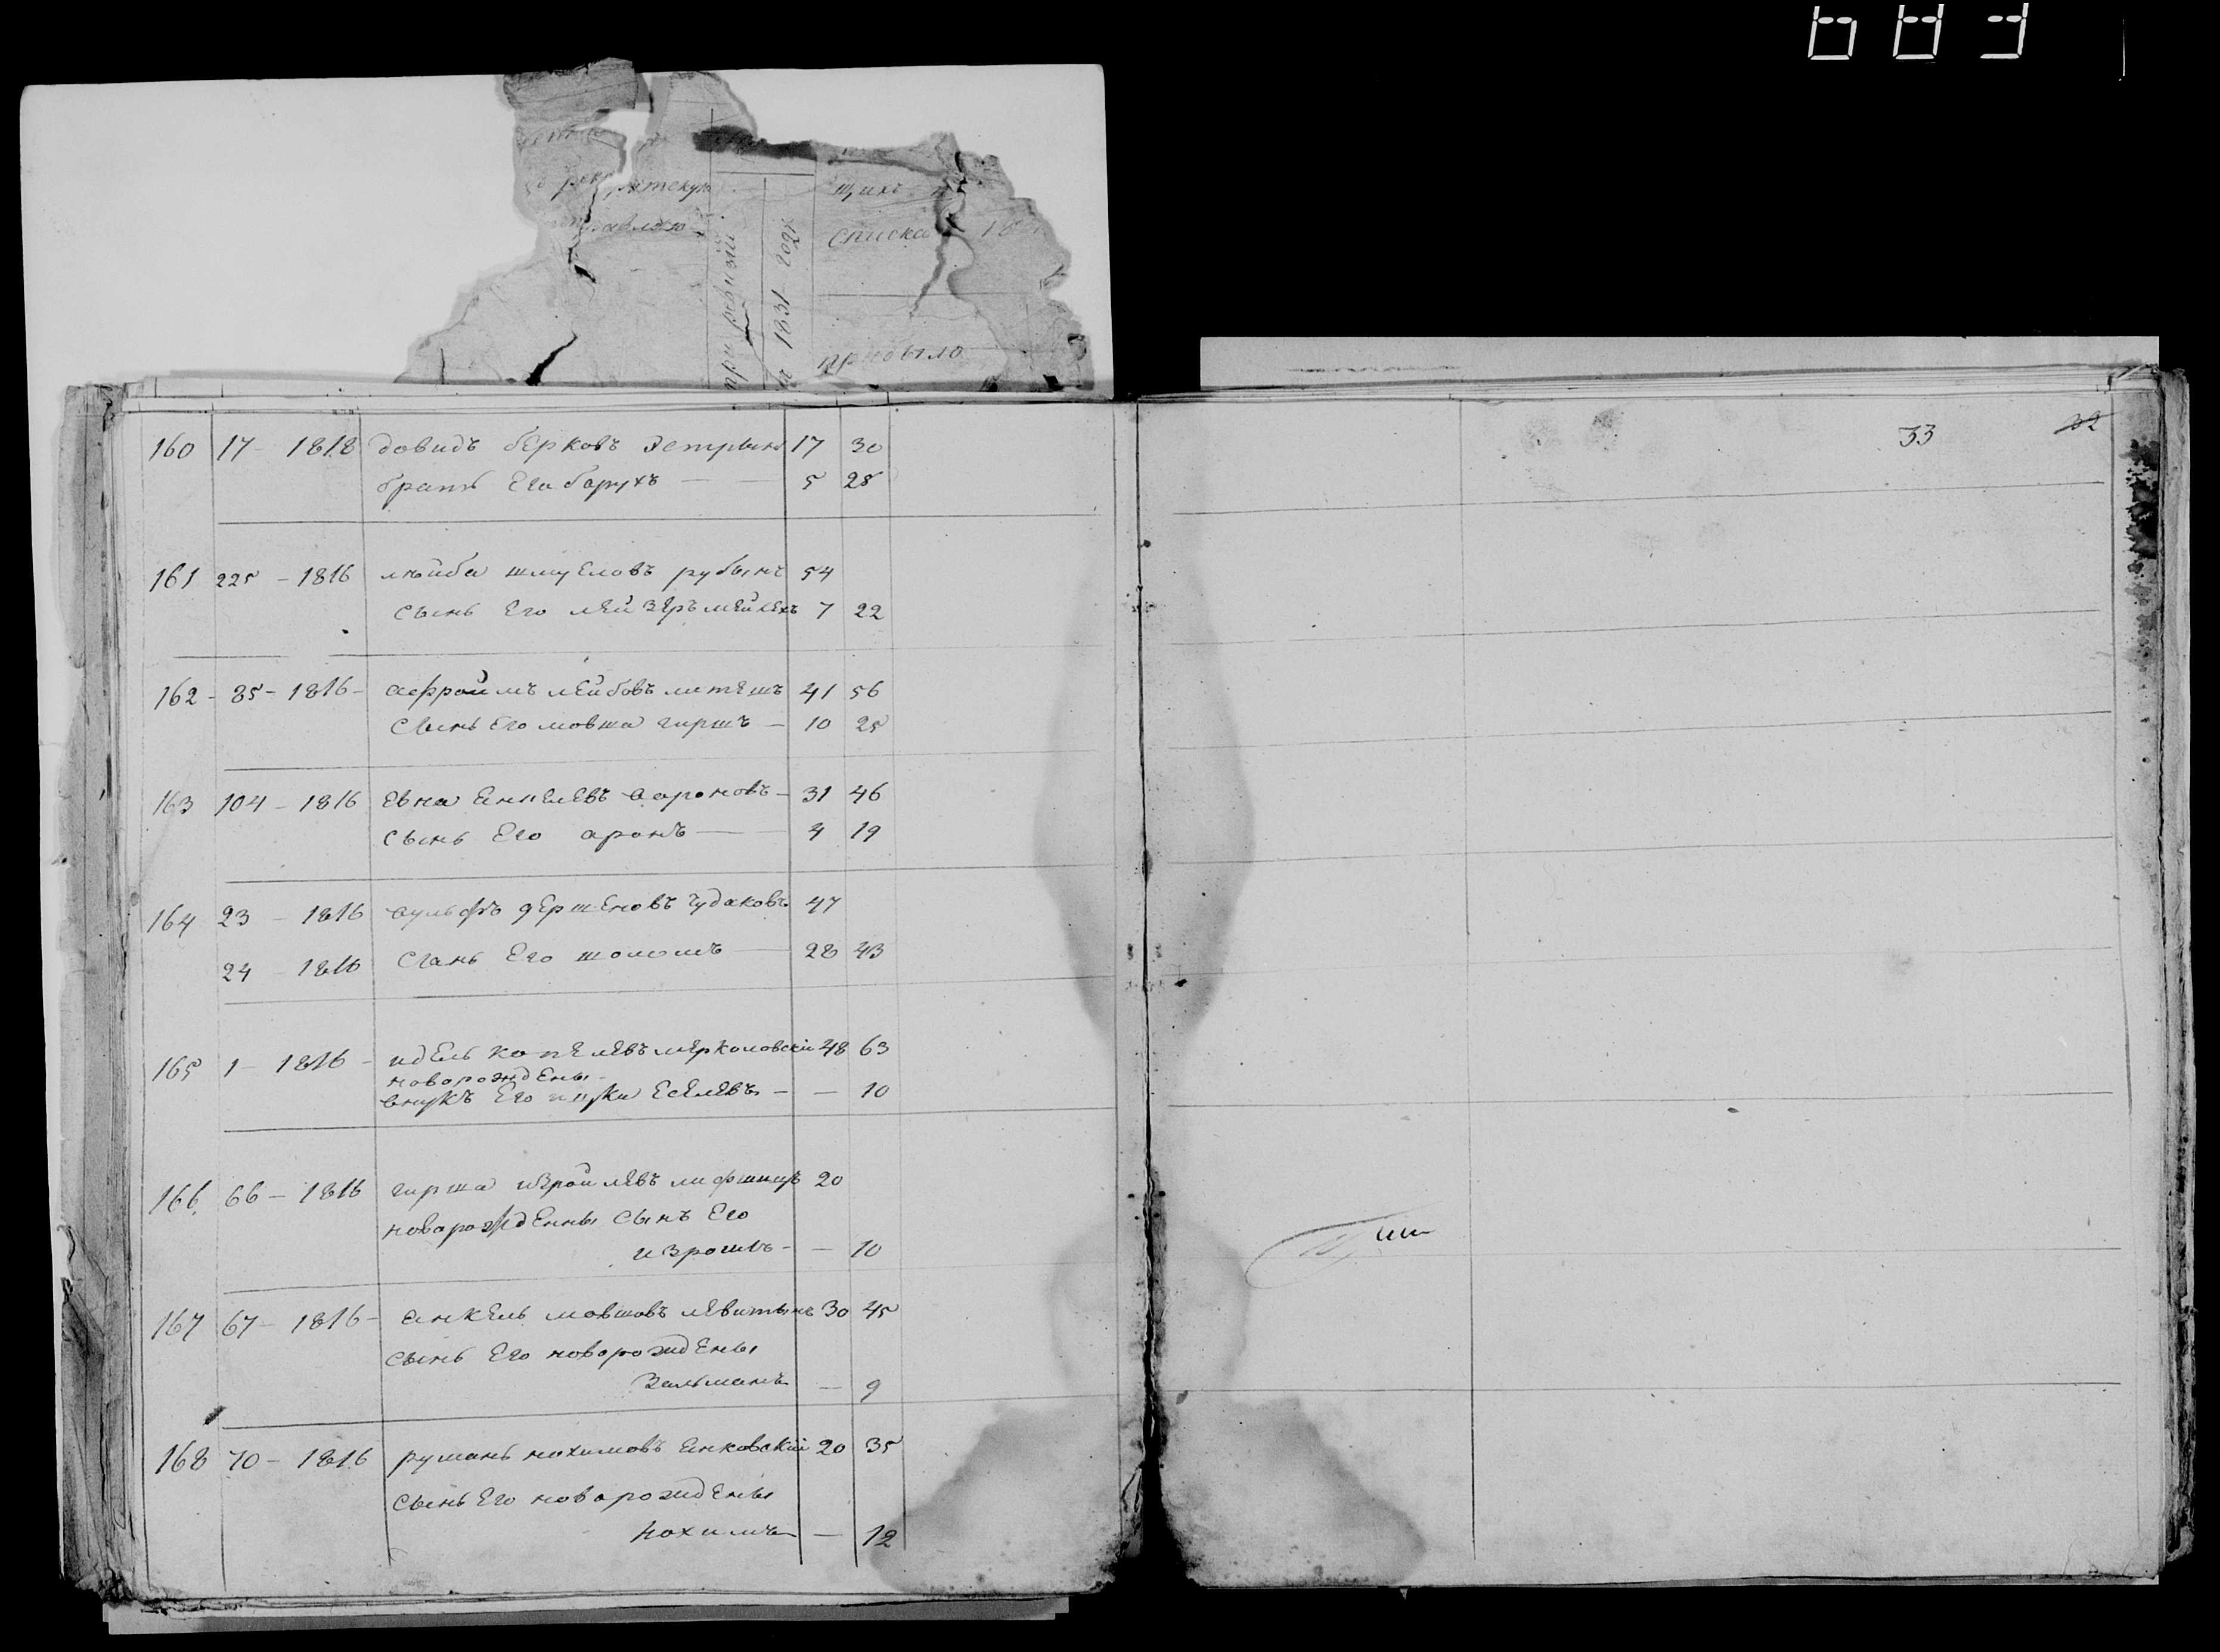 щихъ
списка
при ревизіи
1831 года
прибыло
33 32
160 17 - 1818 довидъ берковъ 17 30
братъ Его барухъ — — 5 28
161 225 - 1816 лейба шмуеловъ рубынъ 54
сынъ Его лейзеръ мейлехъ 7 22
162 - 85 - 1816 - афроимъ лейбовъ 41 56
сынъ Его мовша гиршъ — 10 25
163 104 - 1816 Евна аароновъ - 31 46
сынъ Его аронъ — 4 19
164 23 - 1816 вульфъ чудаковъ 47
24 - 1816 сынъ Его шоломъ — 28 43
165 1 - 1816 - идель копелевъ меркаловскій 48 63
новорождены
внукъ Его Еселевъ - — 10
166 66 - 1816 гирша изроилевъ лифшицъ 20
новорожденны сынъ Его
- — 10
167 67 - 1816 - янкель мовшовъ левитынъ 30 45
сынъ Его новорождены
Зальманъ — 9
168 70 - 1816 нохимовъ янковскій 20 35
сынъ Его новорождены
Нохимъ — 12